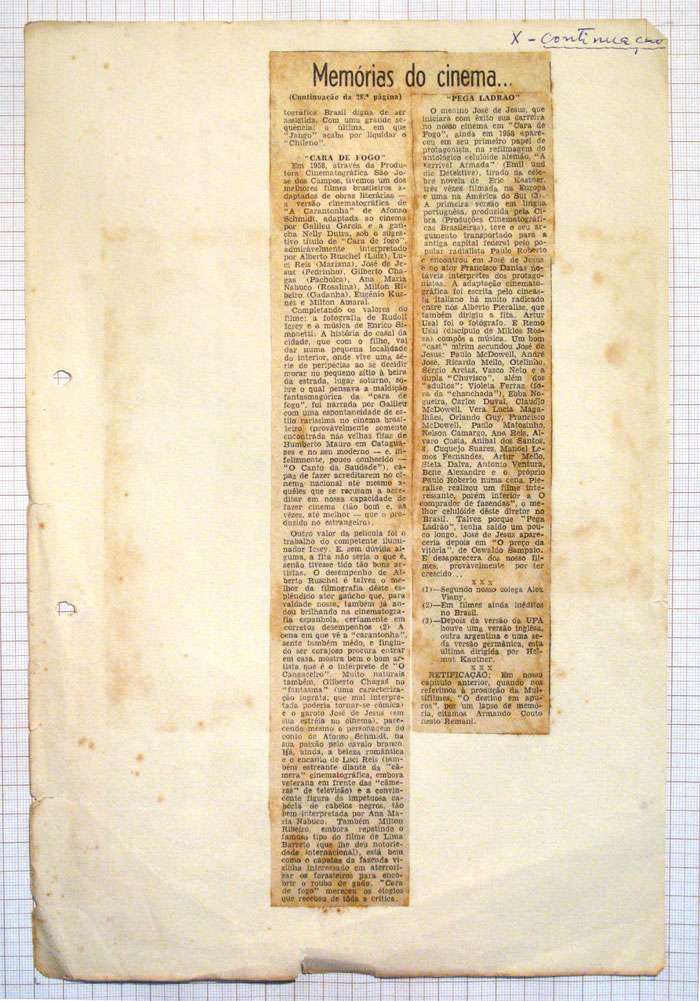 X - Continuação
Memórias do cinema...
(Continuação da 28.ª página)
tográfica Brasil digna de ser
assistida. Com uma grande se-
quência: a última, em que
"Jango" acaba por liquidar o
"Chileno".
"CARA DE FOGO"
Em 1958, através da Produ-
tora Cinematográfica São Jo-
sé dos Campos, tivemos um dos
melhores filmes brasileiros a-
daptados de obras literárias —
a versão cinematográfica de
"A Carantonha" de Afonso
Schmidt, adaptada ao cinema
por Galileu Garcia e a gaú-
cha Nelly Dutra, sob o suges-
tivo título de "Cara de fogo",
admiràvelmente interpretado
por Alberto Ruschel (Luiz), Lu-
ci Reis (Mariana), José de Je-
sus (Pedrinho), Gilberto Cha-
gas (Pacholca), Ana Maria
Nabuco (Rosalina), Milton Ri-
beiro (Gadanha), Eugênio Kus-
net e Milton Amaral.
Completando os valores no
filme: a fotografia de Rudolf
Icsey e a música de Enrico Si-
monetti. A história do casal da
cidade, que com o filho, vai
dar numa pequena localidade
do interior, onde vive uma sé-
rie de peripécias ao se decidir
morar no pequeno sítio à beira
da estrada, lugar soturno, so-
bre o qual pensava a maldição
fantasmagórica da "cara de
fogo", foi narrada por Galileu
com uma espontaneidade de es-
tilo raríssima no cinema brasi-
leiro (provàvelmente somente
encontrada nas velhas fitas de
Humberto Mauro em Catagua-
ses e no seu moderno — e, in-
felizmente, pouco conhecido —
"O Canto da Saudade"), ca-
paz de fazer acreditarem no ci-
nema nacional até mesmo a-
quêles que se recusam a acre-
ditar em nossa capacidade de
fazer cinema (tão bom e, as
vêzes, até melhor — que o pro-
duzido no estrangeiro).
Outro valor da película foi o
trabalho do competente ilumi-
nador Icsey. E, sem dúvida al-
guma, a fita não seria o que é,
senão tivesse tido tão bons ar-
tistas. O desempenho de Al-
berto Ruschel é talvez o me-
lhor da filmografia dêste es-
plêndido ator gaúcho que, para
vaidade nossa, também já an-
dou brilhando na cinematogra-
fia espanhola, certamente em
corretos desempenhos (2) A
cena em que vê a "carantonha",
sente também mêdo, e fingin-
do ser corajoso procura entrar
em casa, mostra bem o bom ar-
tista que é o intérprete de "O
Cangaceiro". Muito naturais
também, Gilberto Chagas no
"fantasma" (uma caracteriza-
ção ingrata, que mal interpre-
tada poderia tornar-se cômica)
e o garoto José de Jesus (em
sua estréia no cinema), pare-
cendo mesmo o personagem do
conto de Afonso Schmidt, na
sua paixão pelo cavalo branco.
Há, ainda, a beleza romântica
e o encanto de Luci Reis (tam-
bém estreante diante da "câ-
mera" cinematográfica, embora
veterana em frente das "câme-
ras" de televisão) e a convin-
cente figura da impetuosa ca-
bocla de cabelos negros, tão
bem interpretada por Ana Ma-
ria Nabuco. Também Milton
Ribeiro, embora repetindo o
famoso tipo do filme de Lima
Barreto (que lhe deu notorie-
dade internacional), está bem
como o capataz da fazenda vi-
zinha interessado em aterrori-
zar os forasteiros para enco-
brir o roubo de gado. "Cara
de fogo" mereceu os elogios
que recebeu de tôda a crítica.
"PEGA LADRÃO"
O menino José de Jesus, que
iniciara com êxito sua carreira
no nosso cinema em "Cara de
Fogo", ainda em 1958 apare-
ceu em seu primeiro papel de
protagonista, na refilmagem do
antológico celulóide alemão, "A
terrível Armada" (Emil und
die Detektive), tirado da céle-
bre novela de Eric Kastner,
três vêzes filmada na Europa
e uma na América do Sul (3)
A primeira versão em língua
portuguêsa, produzida pela Ci-
bra (Produções Cinematográfi-
cas Brasileiras), teve o seu ar-
gumento transportado para a
antiga capital federal pelo po-
pular radialista Paulo Roberto
e encontrou em José de Jesus
e no ator Francisco Dantas no-
táveis intérpretes dos protago-
nistas. A adaptação cinemato-
gráfica foi escrita pelo cineas-
ta italiano há muito radicado
entre nós Alberto Pieralise, que
também dirigiu a fita. Artur
Usai foi o fotógrafo. E Remo
Usai (discípulo de Miklos Ros-
za) compôs a música. Um bom
"cast" mirim secundou José de
Jesus: Paulo McDowell, André
José, Ricardo Mello, Otelinho,
Sérgio Areias, Vasco Neto e a
dupla "Chuvisco", além dos
"adultos": Violeta Ferraz (fo-
ra da "chanchada"), Ebba No-
gueira, Carlos Duval, Claudio
McDowell, Vera Lucia Maga-
lhães, Orlando Guy, Francisco
McDowell, Paulo Matozinho,
Nelson Camargo, Ana Reis, Al-
varo Costa, Anibal dos Santos,
J. Cuquejo Suarez, Manoel Le-
mos Fernandes, Artur Mello,
Stela Dalva, Antonio Ventura,
Bene Alexandre e o próprio
Paulo Roberto numa cena. Pie-
ralise realizou um filme inte-
ressante, porém inferior a O
comprador de fazendas", o me-
lhor celulóide dêste diretor no
Brasil. Talvez porque "Pega
Ladrão", tenha saído um pou-
co longo. José de Jesus apare-
ceria depois em "O preço da
vitória", de Oswaldo Sampaio.
E desaparecera dos nosso fil-
mes, provàvelmente por ter
crescido...
x x x
(1)—Segundo nosso colega Alex
Viany.
(2)—Em filmes ainda inéditos
no Brasil.
(3)—Depois da versão da UFA
houve uma versão inglêsa,
outra argentina e uma se-
da versão germânica, esta
última dirigida por Hel-
mut Kautner.
xxx
RETIFICAÇÃO: Em nosso
capítulo anterior, quando nos
referimos à produção da Mul-
tifilmes, "O destino em apu-
ros", por um lapso de memó-
ria, citamos Armando Couto
nesto Remani.